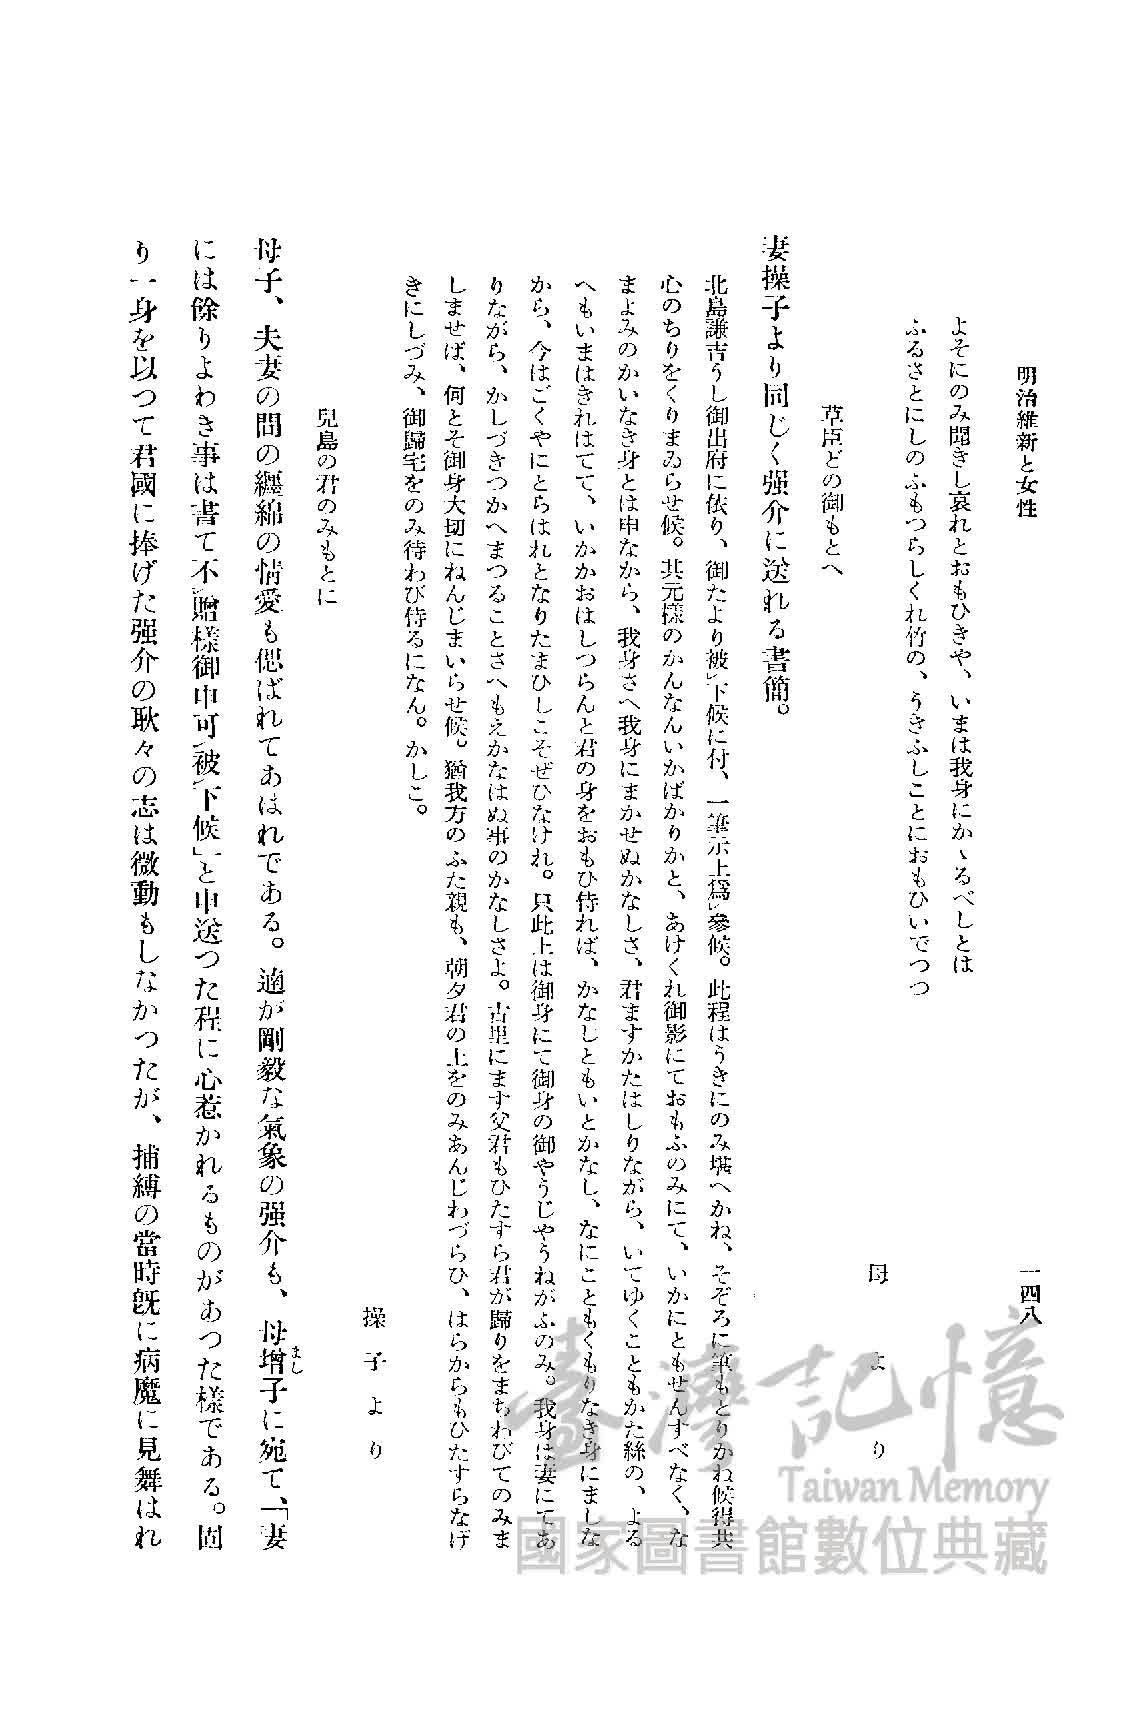 明治維新と女性
一四八
よそにのみ聞きし哀れとおもひきや、いまは我身にかゝるべしとは
ふるさとにしのふもつらしくれ竹の、うきふしことにおもひいでつつ
母より
草臣どの御もとへ
妻操子より同じく强介に送れる書簡。
北島謙吉うし御出府に依り、御たより被㆑下候に付、一筆示上爲㆑參候。此程はうきにのみ堪へかね、そぞろに筆もとりかね候得共
心のちりをくりまゐらせ候。其元樣のかんなんいかばかりかと、あけくれ御影にておもふのみにて、いかにともせんすべなく、な
まよみのかいなき身とは申なから、我身さへ我身にまかせぬかなしさ、君ますかたはしりながら、いてゆくこともかた絲の、よる
へもいまはきれはてて、いかかおはしつらんと君の身をおもひ侍れば、かなしともいとかなし、なにこともくもりなき身にましな
から、今はごくやにとらはれとなりたまひしこそぜひなけれ。只此上は御身にて御身の御やうじやうねがふのみ。我身は妻にてあ
りながら、かしづきつかへまつることさへもえかなはぬ事のかなしさよ。古里にます父君もひたすら君が歸りをまちわびてのみま
しませば、何とそ御身大切にねんじまいらせ候。猶我方のふた親も、朝夕君の上をのみあんじわづらひ、はらからもひたすらなげ
きにしづみ、御歸宅をのみ待わび侍るになん。かしこ。
操子より
兒島の君のみもとに
母子、夫妻の間の纏綿の情愛も偲ばれてあはれである。適が剛毅な氣象の强介も、母增子に宛て、「妻
まし
には餘りよわき事は書て不㆑贈樣御申可㆑被㆑下候」と申送つた程に心惹かれるものがあつた樣である。固
り一身を以つて君國に捧げた强介の耿々の志は微動もしなかつたが、捕縛の當時旣に病魔に見舞はれ
臺灣記憶
Taiwan Memory
國家圖書館數位典藏